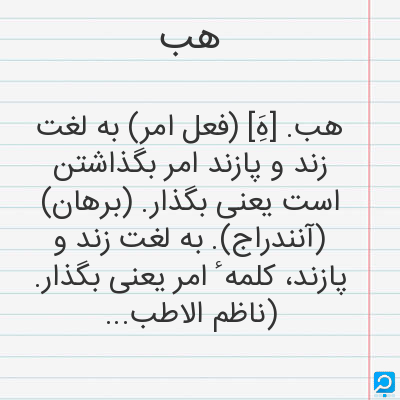 هب
هب. [هَِ] (فعل امر) به لغت
زند و پازند امر بگذاشتن
است یعنی بگذار. (برهان)
(آنندراج). به لغت زند و
پازند، کلمه ٔ امر یعنی بگذار.
(ناظم الاطب...